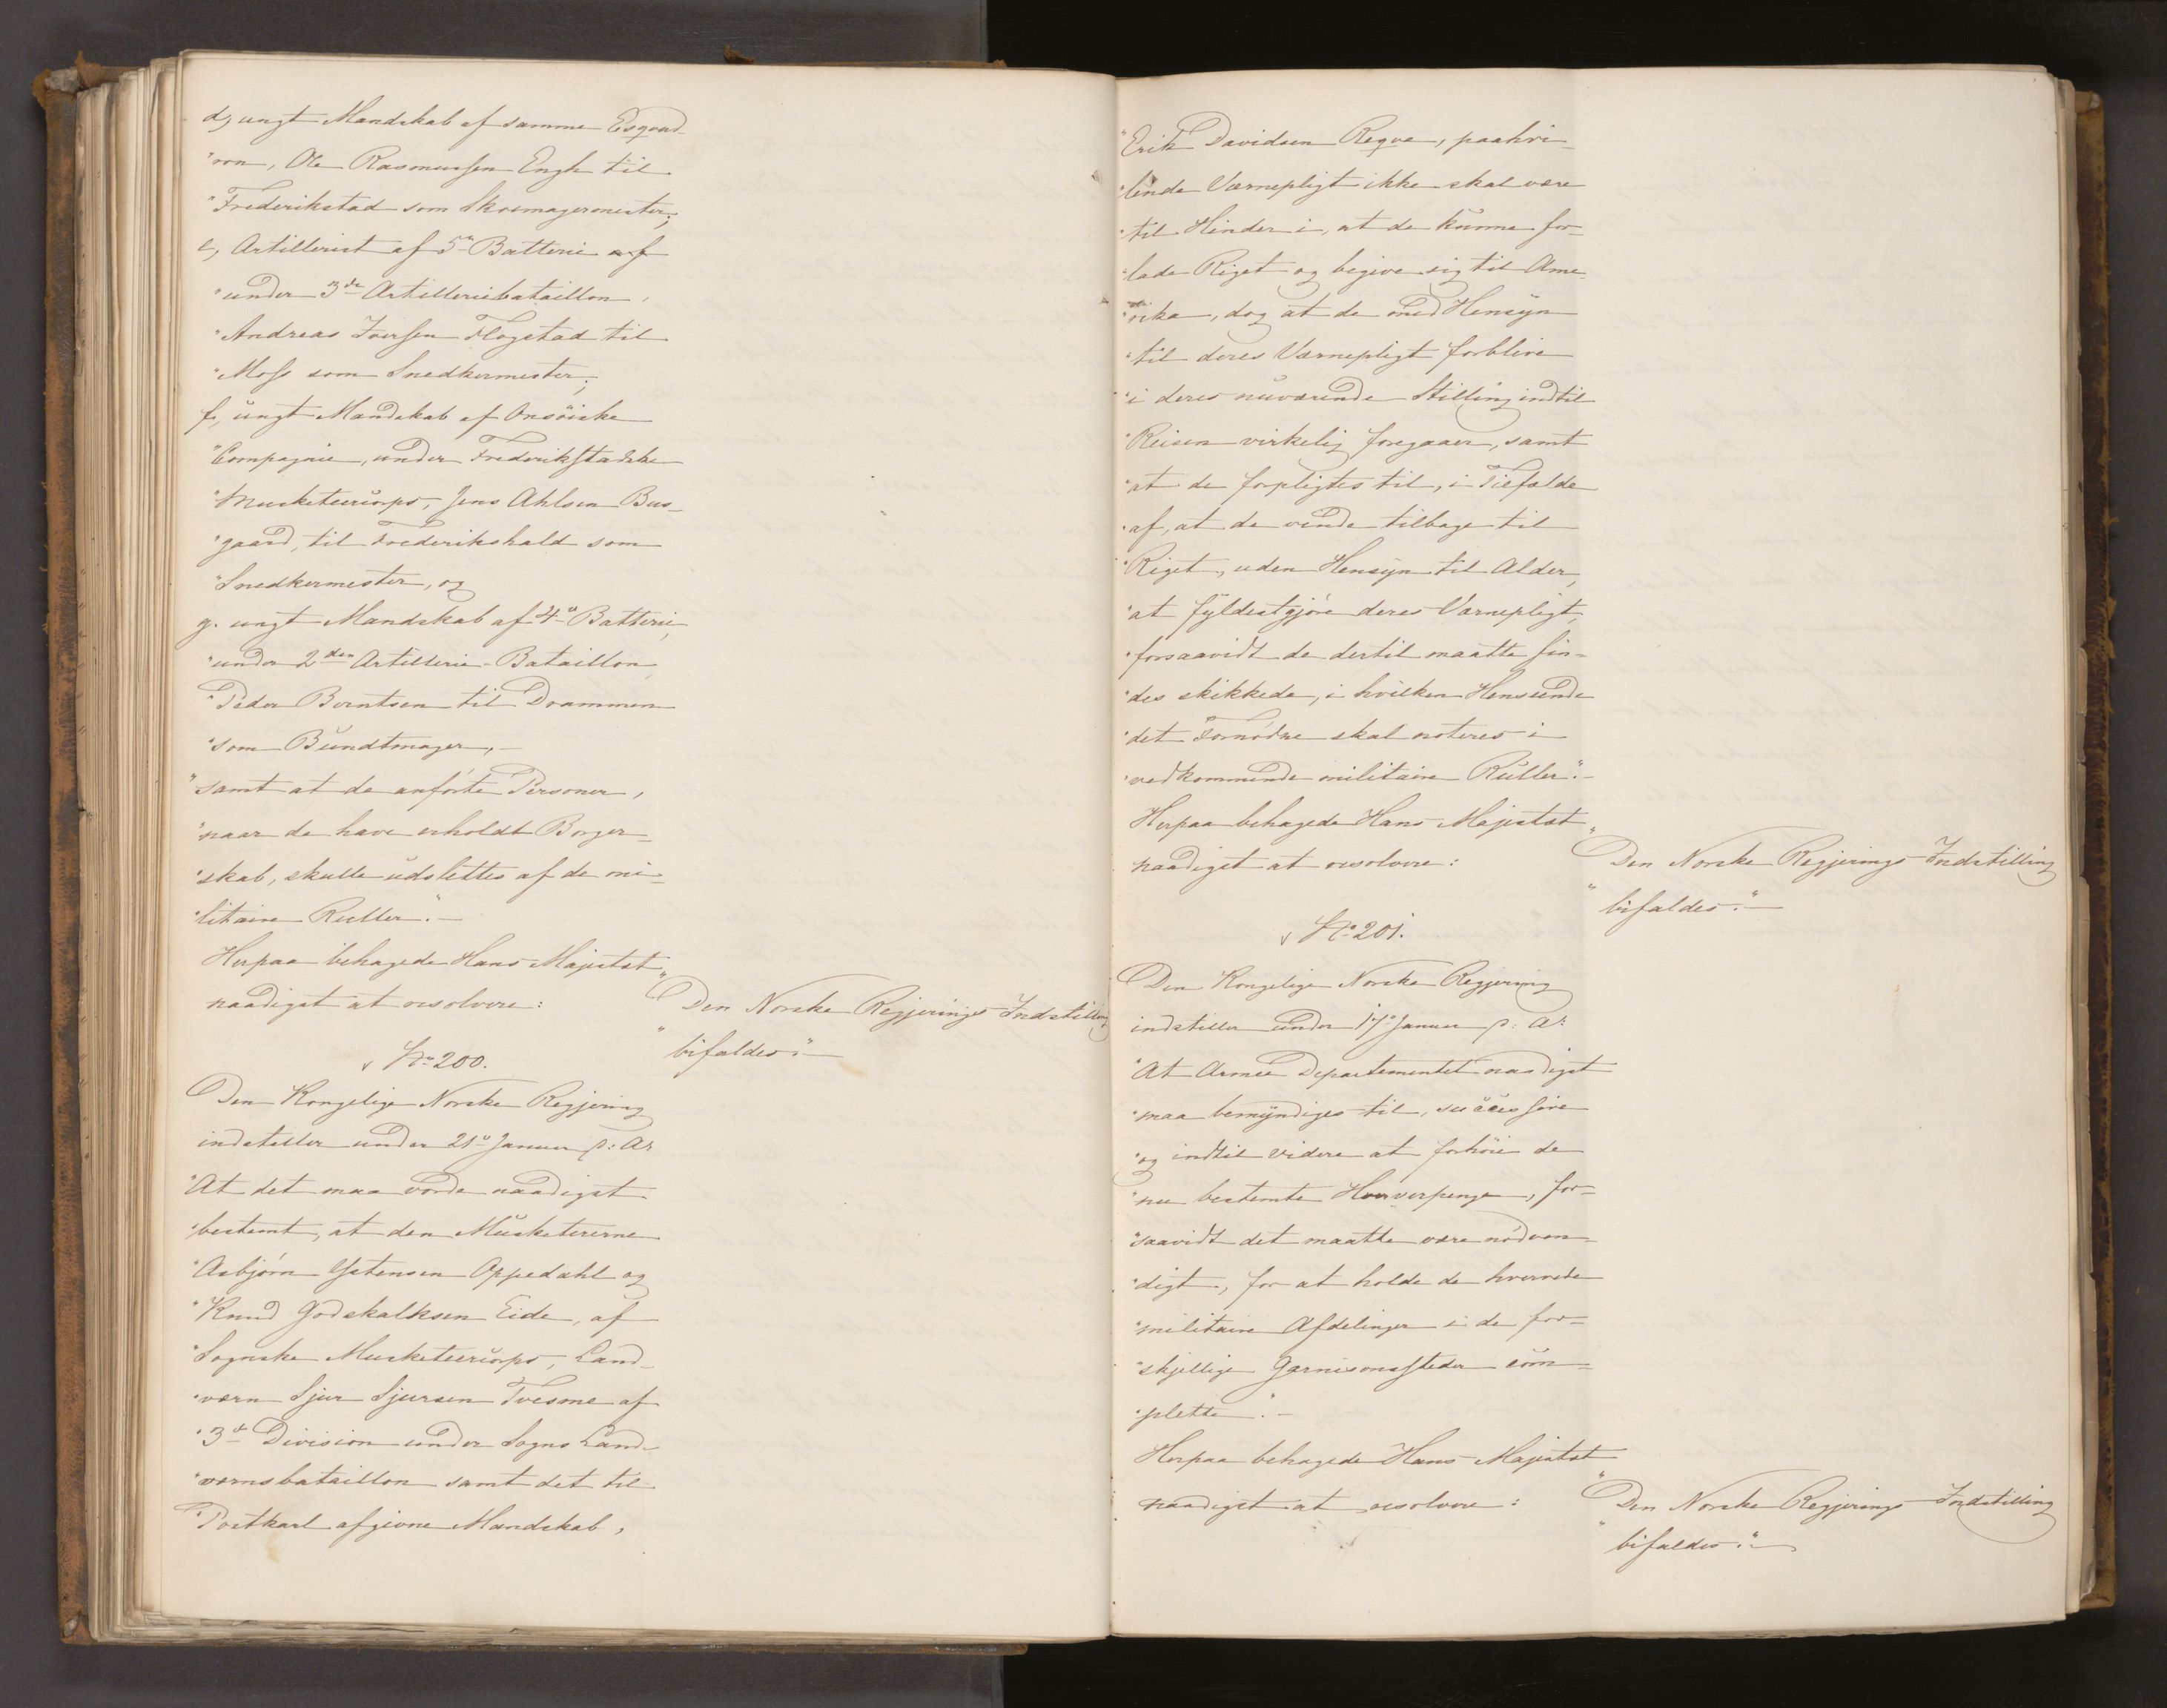 d, ungt Mandskab af samme Esqvad-
"ron, Ole Rasmussen Engh til
"Frederikstad som Skoemagermester;
e, Artillerist af 5te Batterie af
"under 3die Artilleriebataillon,
"Andreas Iversen Flogstad til
"Moss som Snedkermester;
f, ungt Mandskab af Onsöiske
"Compagnie, under Frederikstadske
"Musketeercorps, Jens Ahlsen Bus-
"gaard, til Frederikshald som
"Snedkermester, og
g. ungt Mandskab af 4de Batterie,
"under 2den Artillerie-Bataillon,
"Peder Berntsen til Drammen
"som Bundtmager, –
"samt at de anförte Personer,
"naar de have erholdt Borger-
"skab, skulle udslettes af de mi-
"litaire Ruller". –
Herpaa behagede Hans Majestæt
naadigst at resolvere:
"Den Norske Regjerings Indstilling
"bifaldes". –
No 200.
Den Kongelige Norske Regjering
indstiller under 21de Januar d: A:
"At det maa vorde naadigst
"bestemt, at den Musketererne
"Asbjörn Ystensen Oppedahl og
"Knud Godskalksen Eide, af
"Sognske Musketeercorps, Land-
"værn Sjur Sjursen Tvesme af
"3die Division under Sogns Land-
"værnsbataillon samt det til
"Postkarl afgivne Mandskab,
"Erik Davidsen Reqve, paahvi-
"lende Værnepligt ikke skal være
"til Hinder i, at de kunne for-
"lade Riget og begive sig til Ame-
"rika, dog at de med Hensyn
"til deres Værnepligt forblive
"i deres nuværende Stilling indtil
"Reisen virkelig foregaaer, samt
"at de forpligtes til, i Tilfælde
"af, at de vende tilbage til
"Riget, uden Hensyn til Alder,
"at fyldestgjöre deres Værnepligt,
"forsaavidt de dertil maatte fin-
"des skikkede, i hvilken Henseende
"det Fornödne skal noteres i
"vedkommende militaire Ruller". –
Herpaa behagede Hans Majestæt
naadigst at resolvere:
"Den Norske Regjerings Indstilling
"bifaldes". –
No 201.
Den Kongelige Norske Regjering
indstiller under 17de Januar d: A:
"At Armee Departementet naadigst
"maa bemyndiges til, successive
"og indtil videre at forhöie de
"nu bestemte Hververpenge, for-
"saavidt det maatte være nödven-
"digt, for at holde de hvervede
"militaire Afdelinger i de for-
"skjellige Garnisonssteder com-
"plette". –
Herpaa behagede Hans Majestæt
naadigst at resolvere:
"Den Norske Regjerings Indstilling
"bifaldes". –